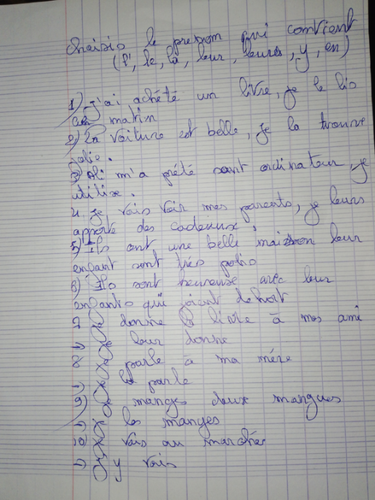 Choisis le pronom qui convient
(l', le, la, leur, leurs, y, en)
1) j'ai acheté un livre, je le lis
ce matin
2) la voiture est belle, je la trouve
jolie.
3) Ali m'a prêté sont ordinateur, je
utilise.
4. je vais voir mes parents, je leurs
apporte des cadeaux.
5) Ils ont une belle maison leur
enfant sont très polis
6) Ils sont heureuse avec leur
enfants qui jouent dehort
7 Je donne la livre à mes ami
-) Je leur donne
8 Je parle a ma mère
-) Je la parle
9) Je mange deux mangues
-) Je les manges
10) Je vais au marcher
-) J y vais